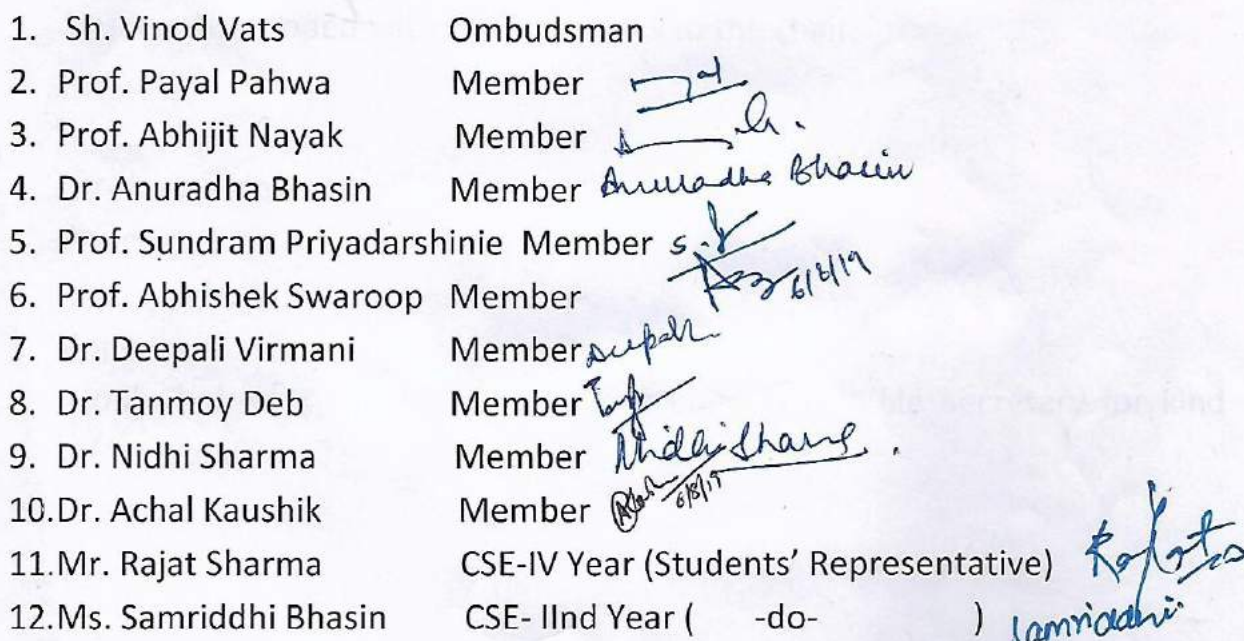 1. Sh. Vinod Vats Ombudsman
2. Prof. Payal Pahwa Member
3. Prof. Abhijit Nayak Member
4. Dr. Anuradha Bhasin Member Anuradha Bhasin
5. Prof. Sundram Priyadarshinie Member
6. Prof. Abhishek Swaroop Member 6/8/19
7. Dr. Deepali Virmani Member
8. Dr. Tanmoy Deb Member
9. Dr. Nidhi Sharma Member Nidhi Sharma
10.Dr. Achal Kaushik Member 6/8/19
11.Mr. Rajat Sharma CSE-IV Year (Students' Representative) Rajat
12.Ms. Samriddhi Bhasin CSE- IInd Year ( -do- ) Samriddhi